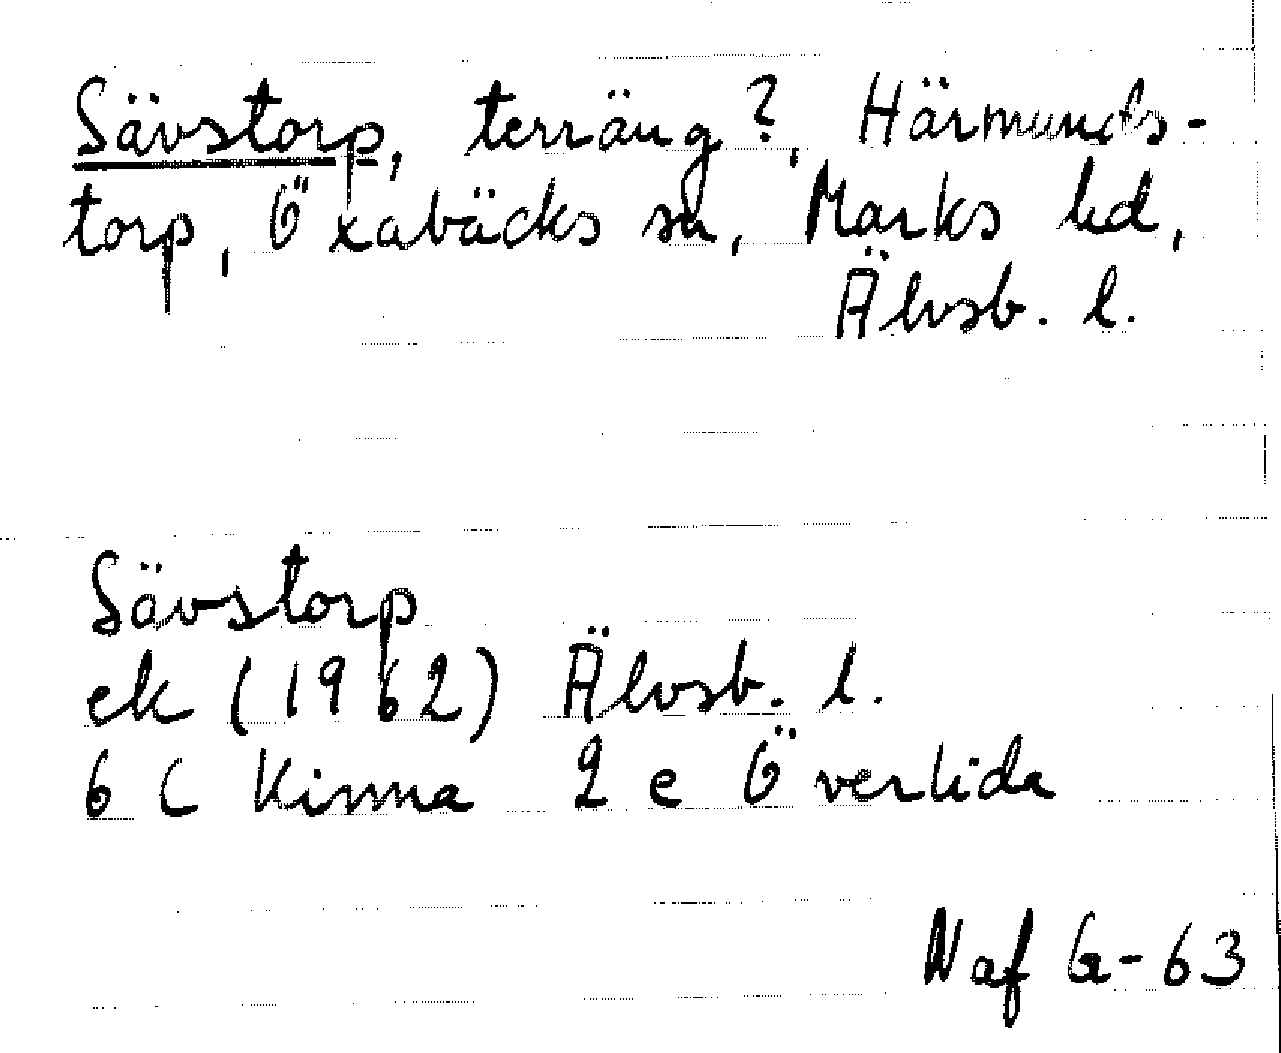 Sävstorp, terräng?, Härmunds-
torp, Öxabäcks sn, Marks hd,
Älvsb. l.
Sävstorp
ek (1962) Älvsb. l.
6 C Kinna 2 e Överlida
Naf G-63